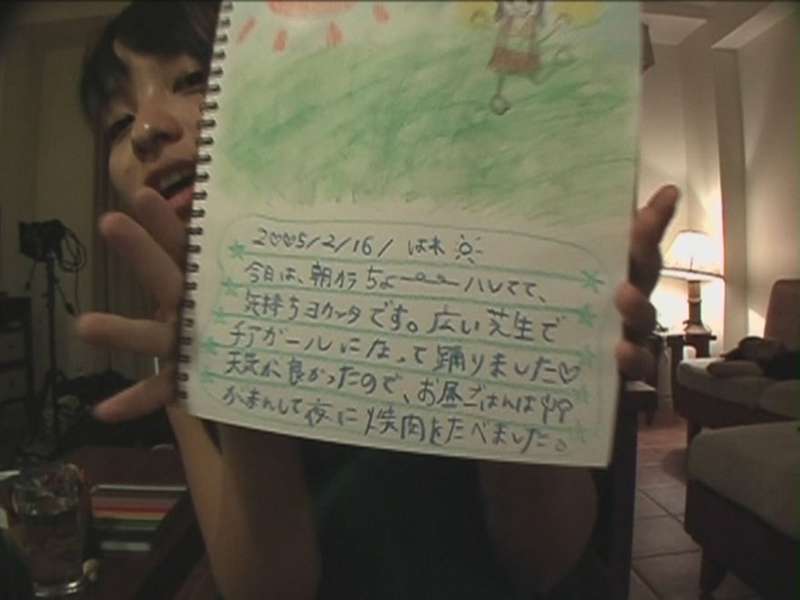 2♡♡5/2/16/ はれ
今日は、朝カラ ちょー〜〜 ハレてて、
気持ちヨカッタです。広い芝生で
チアガールになって踊りました♡
天気が良かったので、お昼ごはんは
がまんして夜に焼肉をたべました。